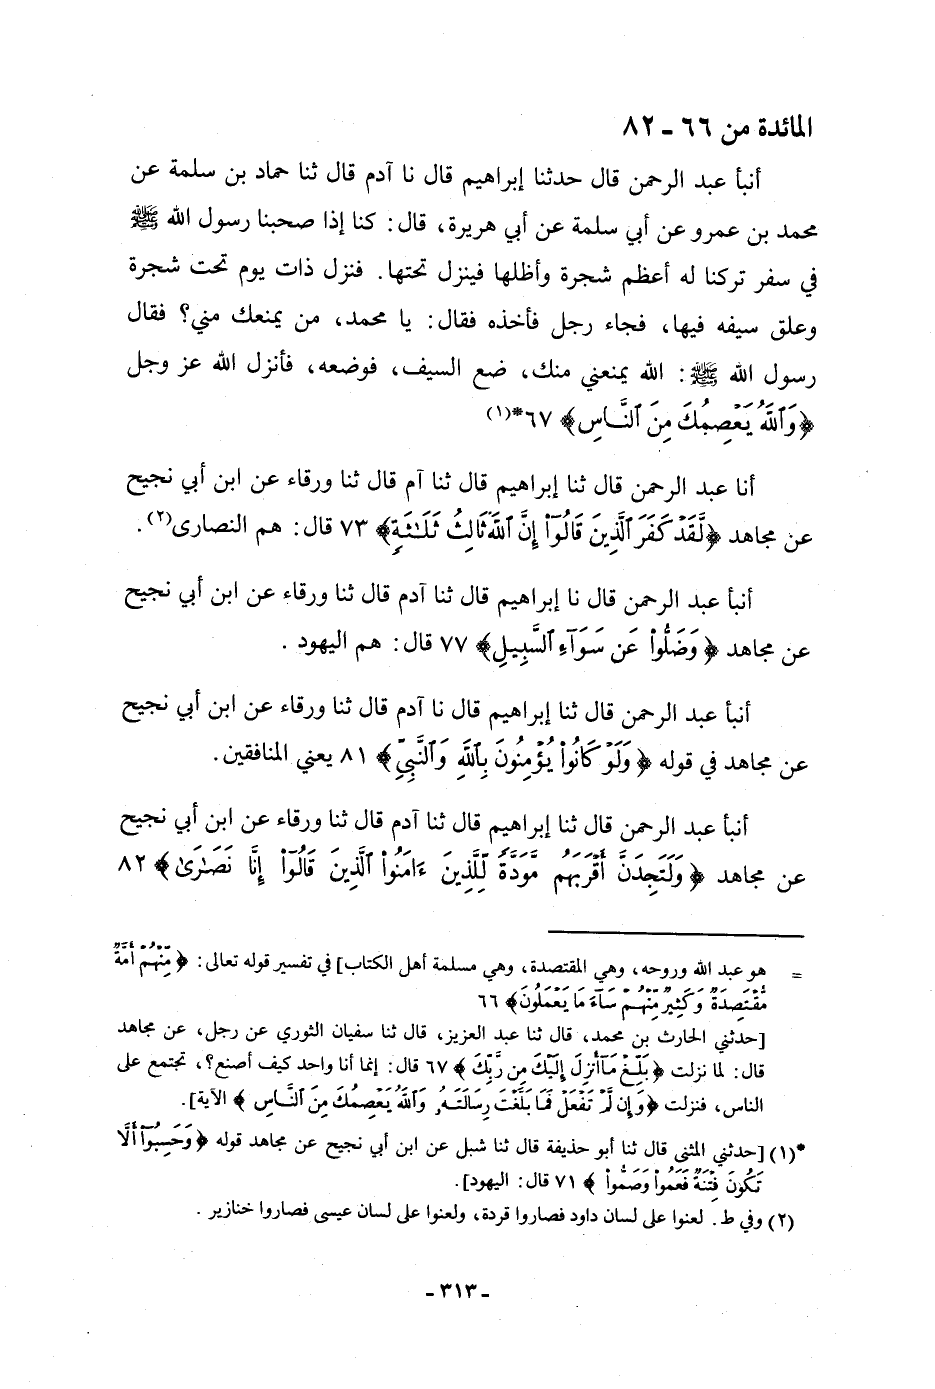 المائدة من ٦٦ ـ ٨٢
أنبأ عبد الرحمن قال حدثنا إبراهيم قال نا آدم قال ثنا حماد بن سلمة عن
محمد بن عمرو عن أبي سلمة عن أبي هريرة، قال: كنا إذا صحبنا رسول الله ﷺ
في سفر تركنا له أعظم شجرة وأظلها فينزل تحتها. فنزل ذات يوم تحت شجرة
وعلق سيفه فيها، فجاء رجل فأخذه فقال: يا محمد، من يمنعك مني؟ فقال
رسول الله ﷺ: الله يمنعني منك، ضع السيف، فوضعه، فأنزل الله عز وجل
﴿وَٱللَّهُ يَعۡصِمُكَ مِنَ ٱلنَّاسِ﴾ ٦٧*(١)
أنا عبد الرحمن قال ثنا إبراهيم قال ثنا آم قال ثنا ورقاء عن ابن أبي نجيح
عن مجاهد ﴿لَّقَدۡ كَفَرَ ٱلَّذِينَ قَالُوٓاْ إِنَّ ٱللَّهَ ثَالِثُ ثَلَٰثَةٖ﴾ ٧٣ قال: هم النصارى(٢).
أنبأ عبد الرحمن قال نا إبراهيم قال ثنا آدم قال ثنا ورقاء عن ابن أبي نجيح
عن مجاهد ﴿وَضَلُّواْ عَن سَوَآءِ ٱلسَّبِيلِ﴾ ٧٧ قال: هم اليهود .
أنبأ عبد الرحمن قال ثنا إبراهيم قال نا آدم قال ثنا ورقاء عن ابن أبي نجيح
عن مجاهد في قوله ﴿وَلَوۡ كَانُواْ يُؤۡمِنُونَ بِٱللَّهِ وَٱلنَّبِيِّ﴾ ٨١ يعني المنافقين.
أنبأ عبد الرحمن قال ثنا إبراهيم قال ثنا آدم قال ثنا ورقاء عن ابن أبي نجيح
عن مجاهد ﴿وَلَتَجِدَنَّ أَقۡرَبَهُم مَّوَدَّةٗ لِّلَّذِينَ ءَامَنُواْ ٱلَّذِينَ قَالُوٓاْ إِنَّا نَصَٰرَىٰ﴾ ٨٢
= هو عبد الله وروحه، وهي المقتصدة، وهي مسلمة أهل الكتاب] في تفسير قوله تعالى: ﴿مِّنۡهُمۡ أُمَّةٞ
مُّقۡتَصِدَةٞ وَكَثِيرٞ مِّنۡهُمۡ سَآءَ مَا يَعۡمَلُونَ﴾ ٦٦
[حدثني الحارث بن محمد، قال ثنا عبد العزيز، قال ثنا سفيان الثوري عن رجل، عن مجاهد
قال: لما نزلت ﴿بَلِّغۡ مَآ أُنزِلَ إِلَيۡكَ مِن رَّبِّكَ﴾ ٦٧ قال: إنما أنا واحد كيف أصنع؟، تجتمع على
الناس، فنزلت ﴿وَإِن لَّمۡ تَفۡعَلۡ فَمَا بَلَّغۡتَ رِسَالَتَهُۥ وَٱللَّهُ يَعۡصِمُكَ مِنَ ٱلنَّاسِ﴾ الآية].
*(١) [حدثني المثنى قال ثنا أبو حذيفة قال ثنا شبل عن ابن أبي نجيح عن مجاهد قوله ﴿وَحَسِبُوٓاْ أَلَّا
تَكُونَ فِتۡنَةٞ فَعَمُواْ وَصَمُّواْ﴾ ٧١ قال: اليهود].
(٢) وفي ط. لعنوا على لسان داود فصاروا قردة، ولعنوا على لسان عيسى فصاروا خنازير .
ـ ٣١٣ ـ